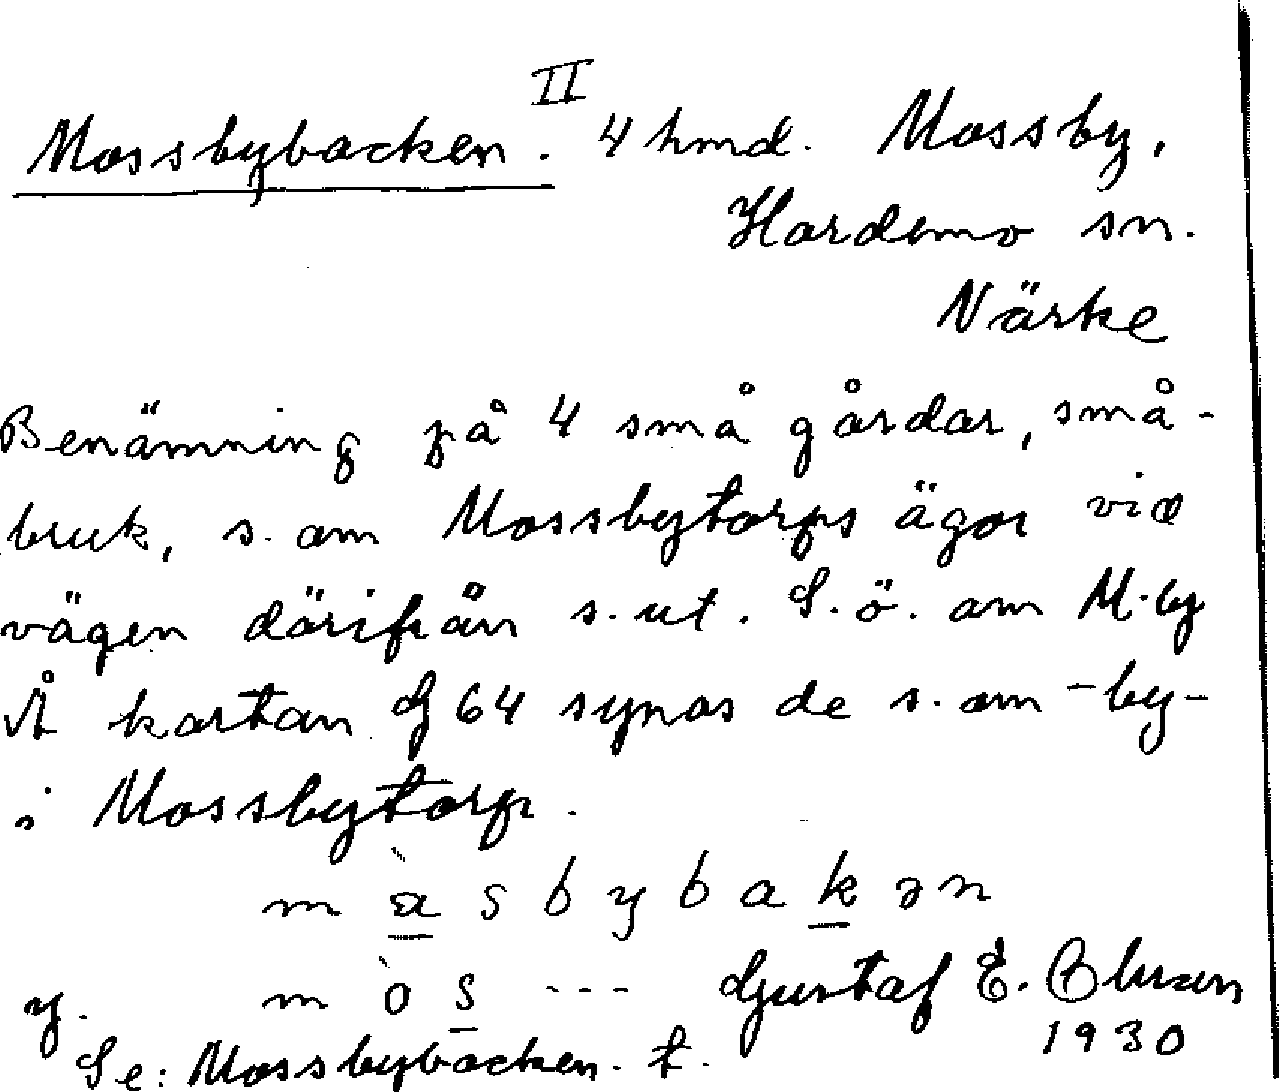 II
Mossbybacken. 4 hmd. Mossby,
Hardemo sn.
Närke
Benämning på 4 små gårdar, små-
bruk, s. om Mossbytorps ägor vid
vägen därifrån s. ut. S. ö. om M-by
Å kartan G 64 synas de s. om -by-
i Mossbytorp.
m à s b y b a k ə n
y. m ò s --- Gustaf E.
1930
Se: Mossbybacken. t.